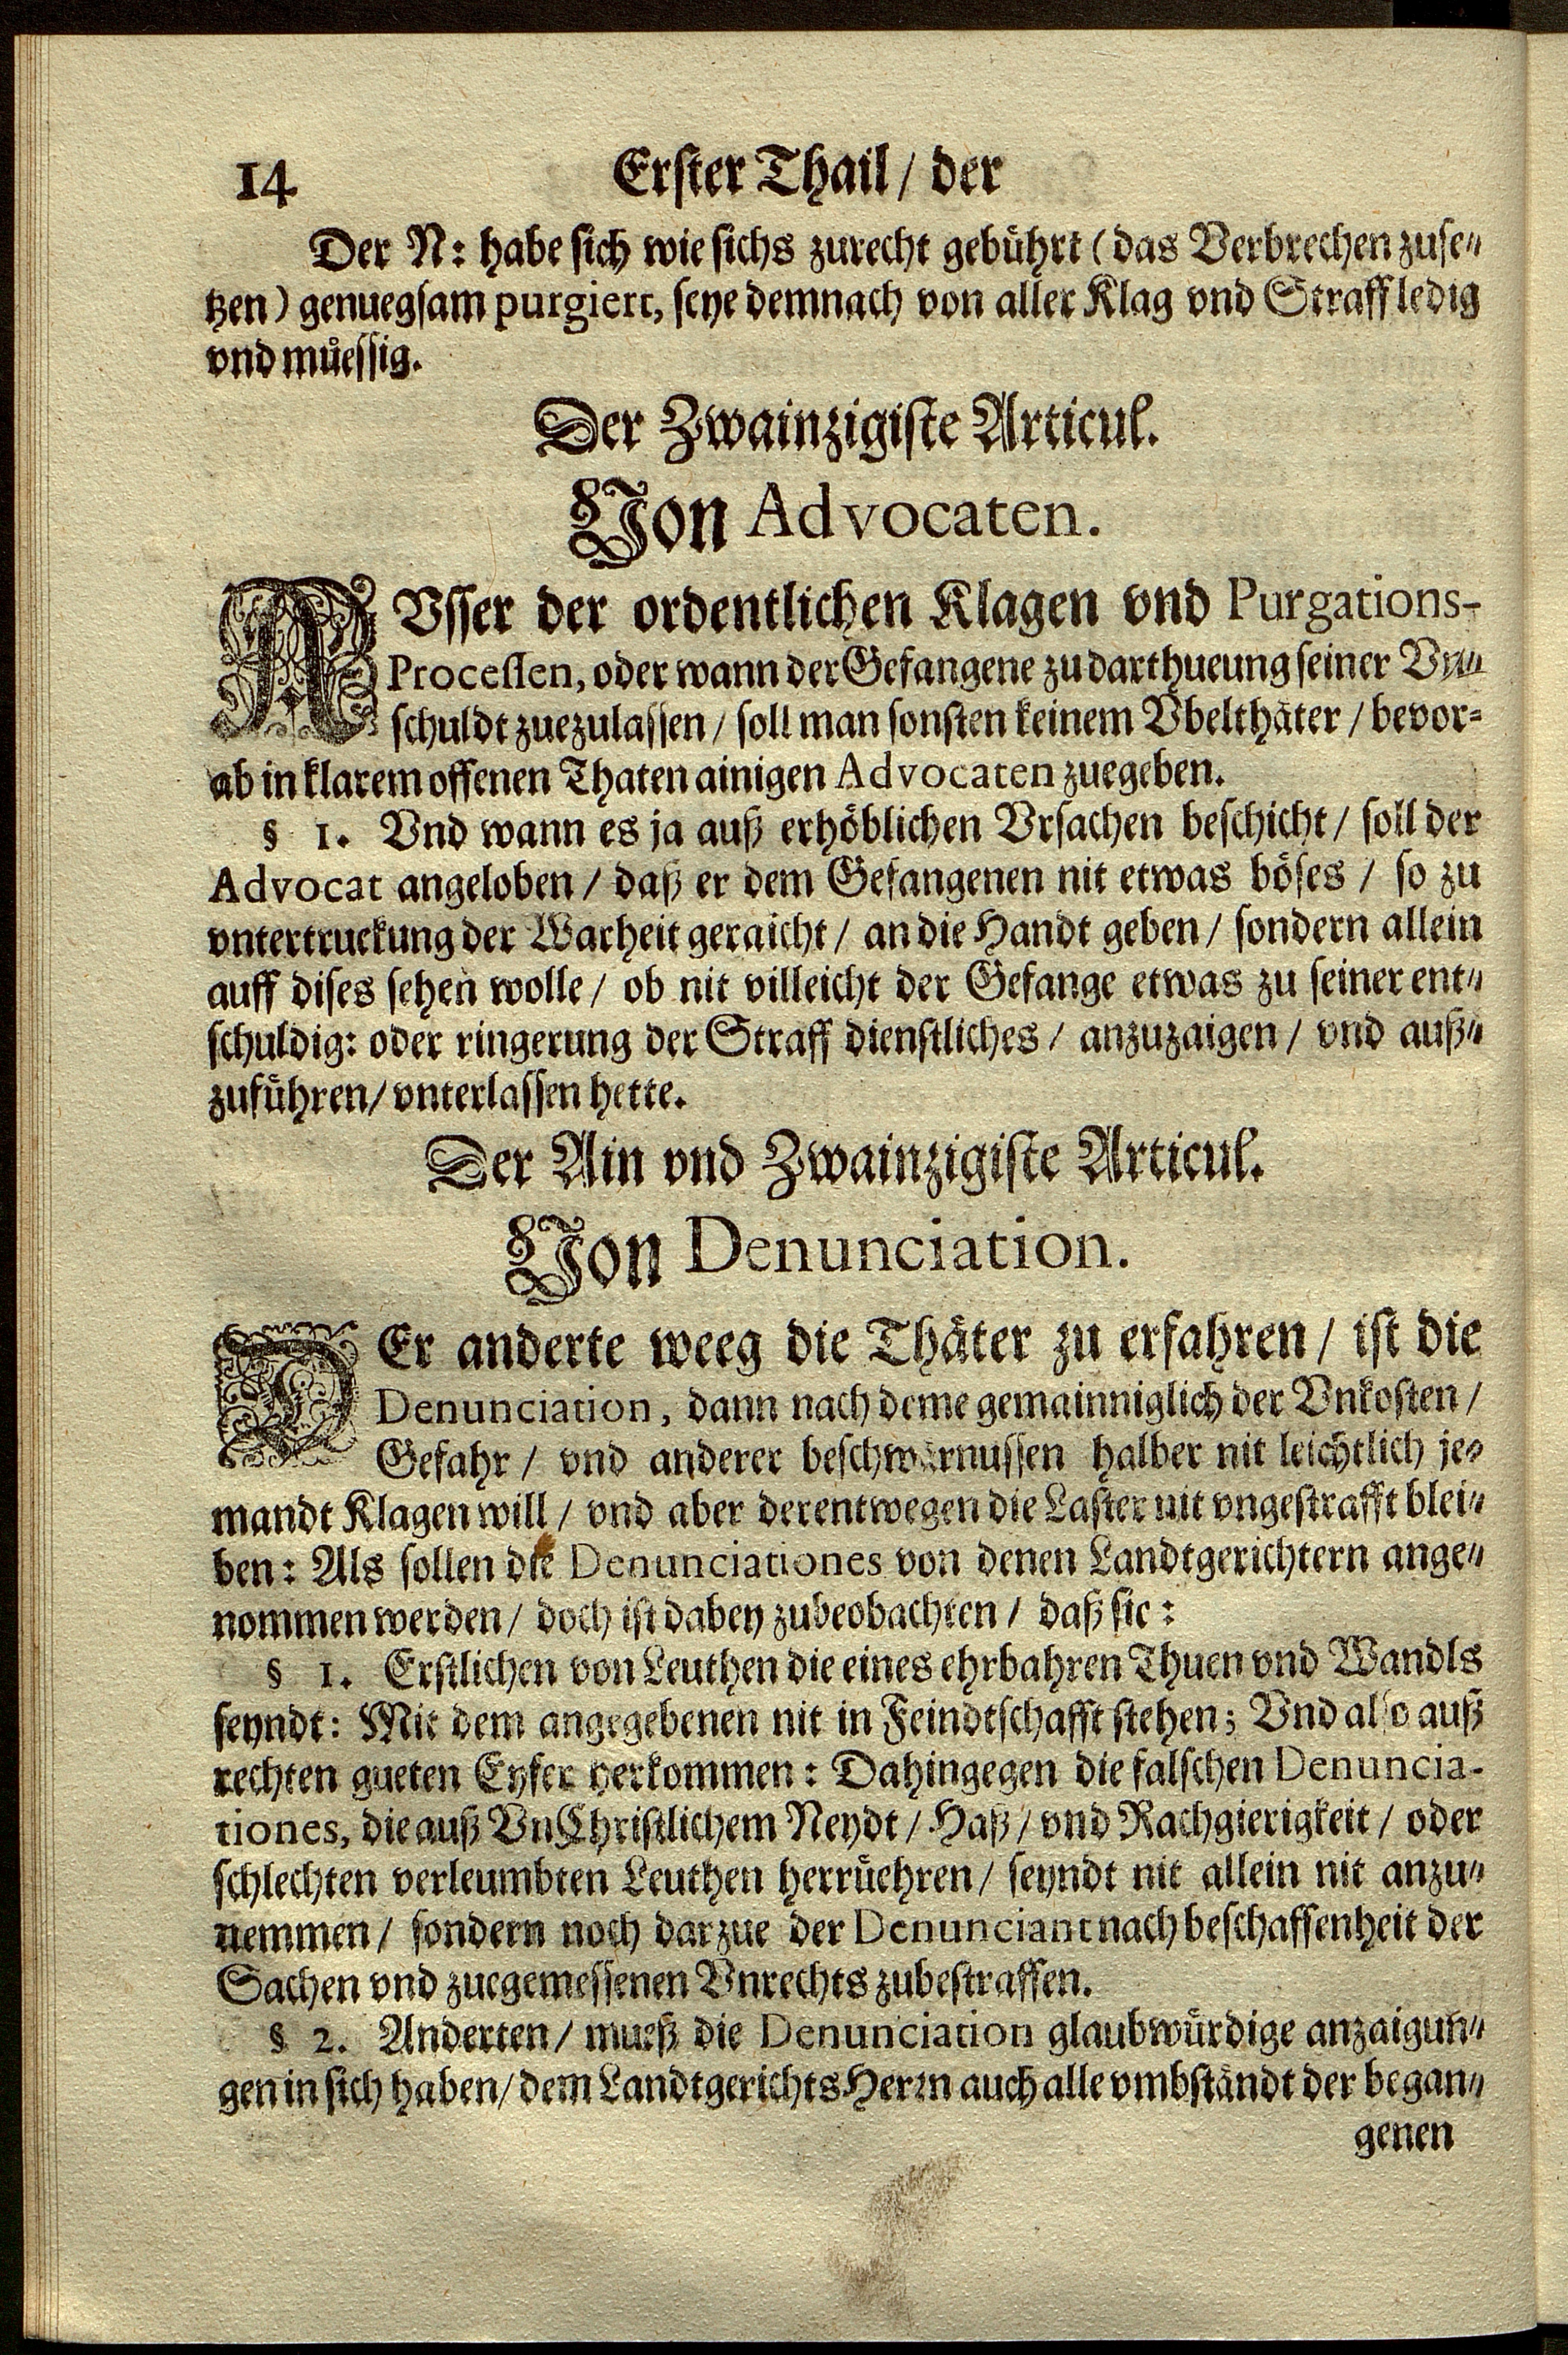 14 Erster Thail / der
Der N: habe sich wie sichs zurecht gebührt (das Verbrechen zuse-
tzen) genuegsam purgiert, seye demnach von aller Klag vnd Straff ledig
vnd müessig.
Der Zwainzigiste Articul.
Von Advocaten.
AVsser der ordentlichen Klagen vnd Purgations-
Processen, oder wann der Gefangene zu darthueung seiner Vn-
schuldt zuezulassen / soll man sonsten keinem Vbelthäter / bevor-
ab in klarem offenen Thaten ainigen Advocaten zuegeben.
§ 1. Vnd wann es ja auß erhöblichen Vrsachen beschicht / soll der
Advocat angeloben / daß er dem Gefangenen nit etwas böses / so zu
vntertruckung der Warheit geraicht / an die Handt geben / sondern allein
auff dises sehen wolle / ob nit villeicht der Gefange etwas zu seiner ent-
schuldig: oder ringerung der Straff dienstliches / anzuzaigen / vnd auß-
zuführen / vnterlassen hette.
Der Ain vnd Zwainzigiste Articul.
Von Denunciation.
DEr anderte weeg die Thäter zu erfahren / ist die
Denunciation, dann nach deme gemainniglich der Vnkosten /
Gefahr / vnd anderer beschwärnussen halber nit leichtlich je-
mandt Klagen will / vnd aber derentwegen die Laster nit vngestrafft blei-
ben: Als sollen die Denunciationes von denen Landtgerichtern ange-
nommen werden / doch ist dabey zubeobachten / daß sie:
§ 1. Erstlichen von Leuthen die eines ehrbahren Thuen vnd Wandls
seyndt: Mit dem angegebenen nit in Feindtschafft stehen; Vnd also auß
rechten gueten Eyfer herkommen: Dahingegen die falschen Denuncia-
tiones, die auß VnChristlichem Neydt / Haß / vnd Rachgierigkeit / oder
schlechten verleumbten Leuthen herrüehren / seyndt nit allein nit anzu-
nemmen / sondern noch darzue der Denunciant nach beschaffenheit der
Sachen vnd zuegemessenen Vnrechts zubestraffen.
§ 2. Anderten / mueß die Denunciation glaubwürdige anzaigun-
gen in sich haben / dem Landtgerichts Herrn auch alle vmbständt der began-
genen